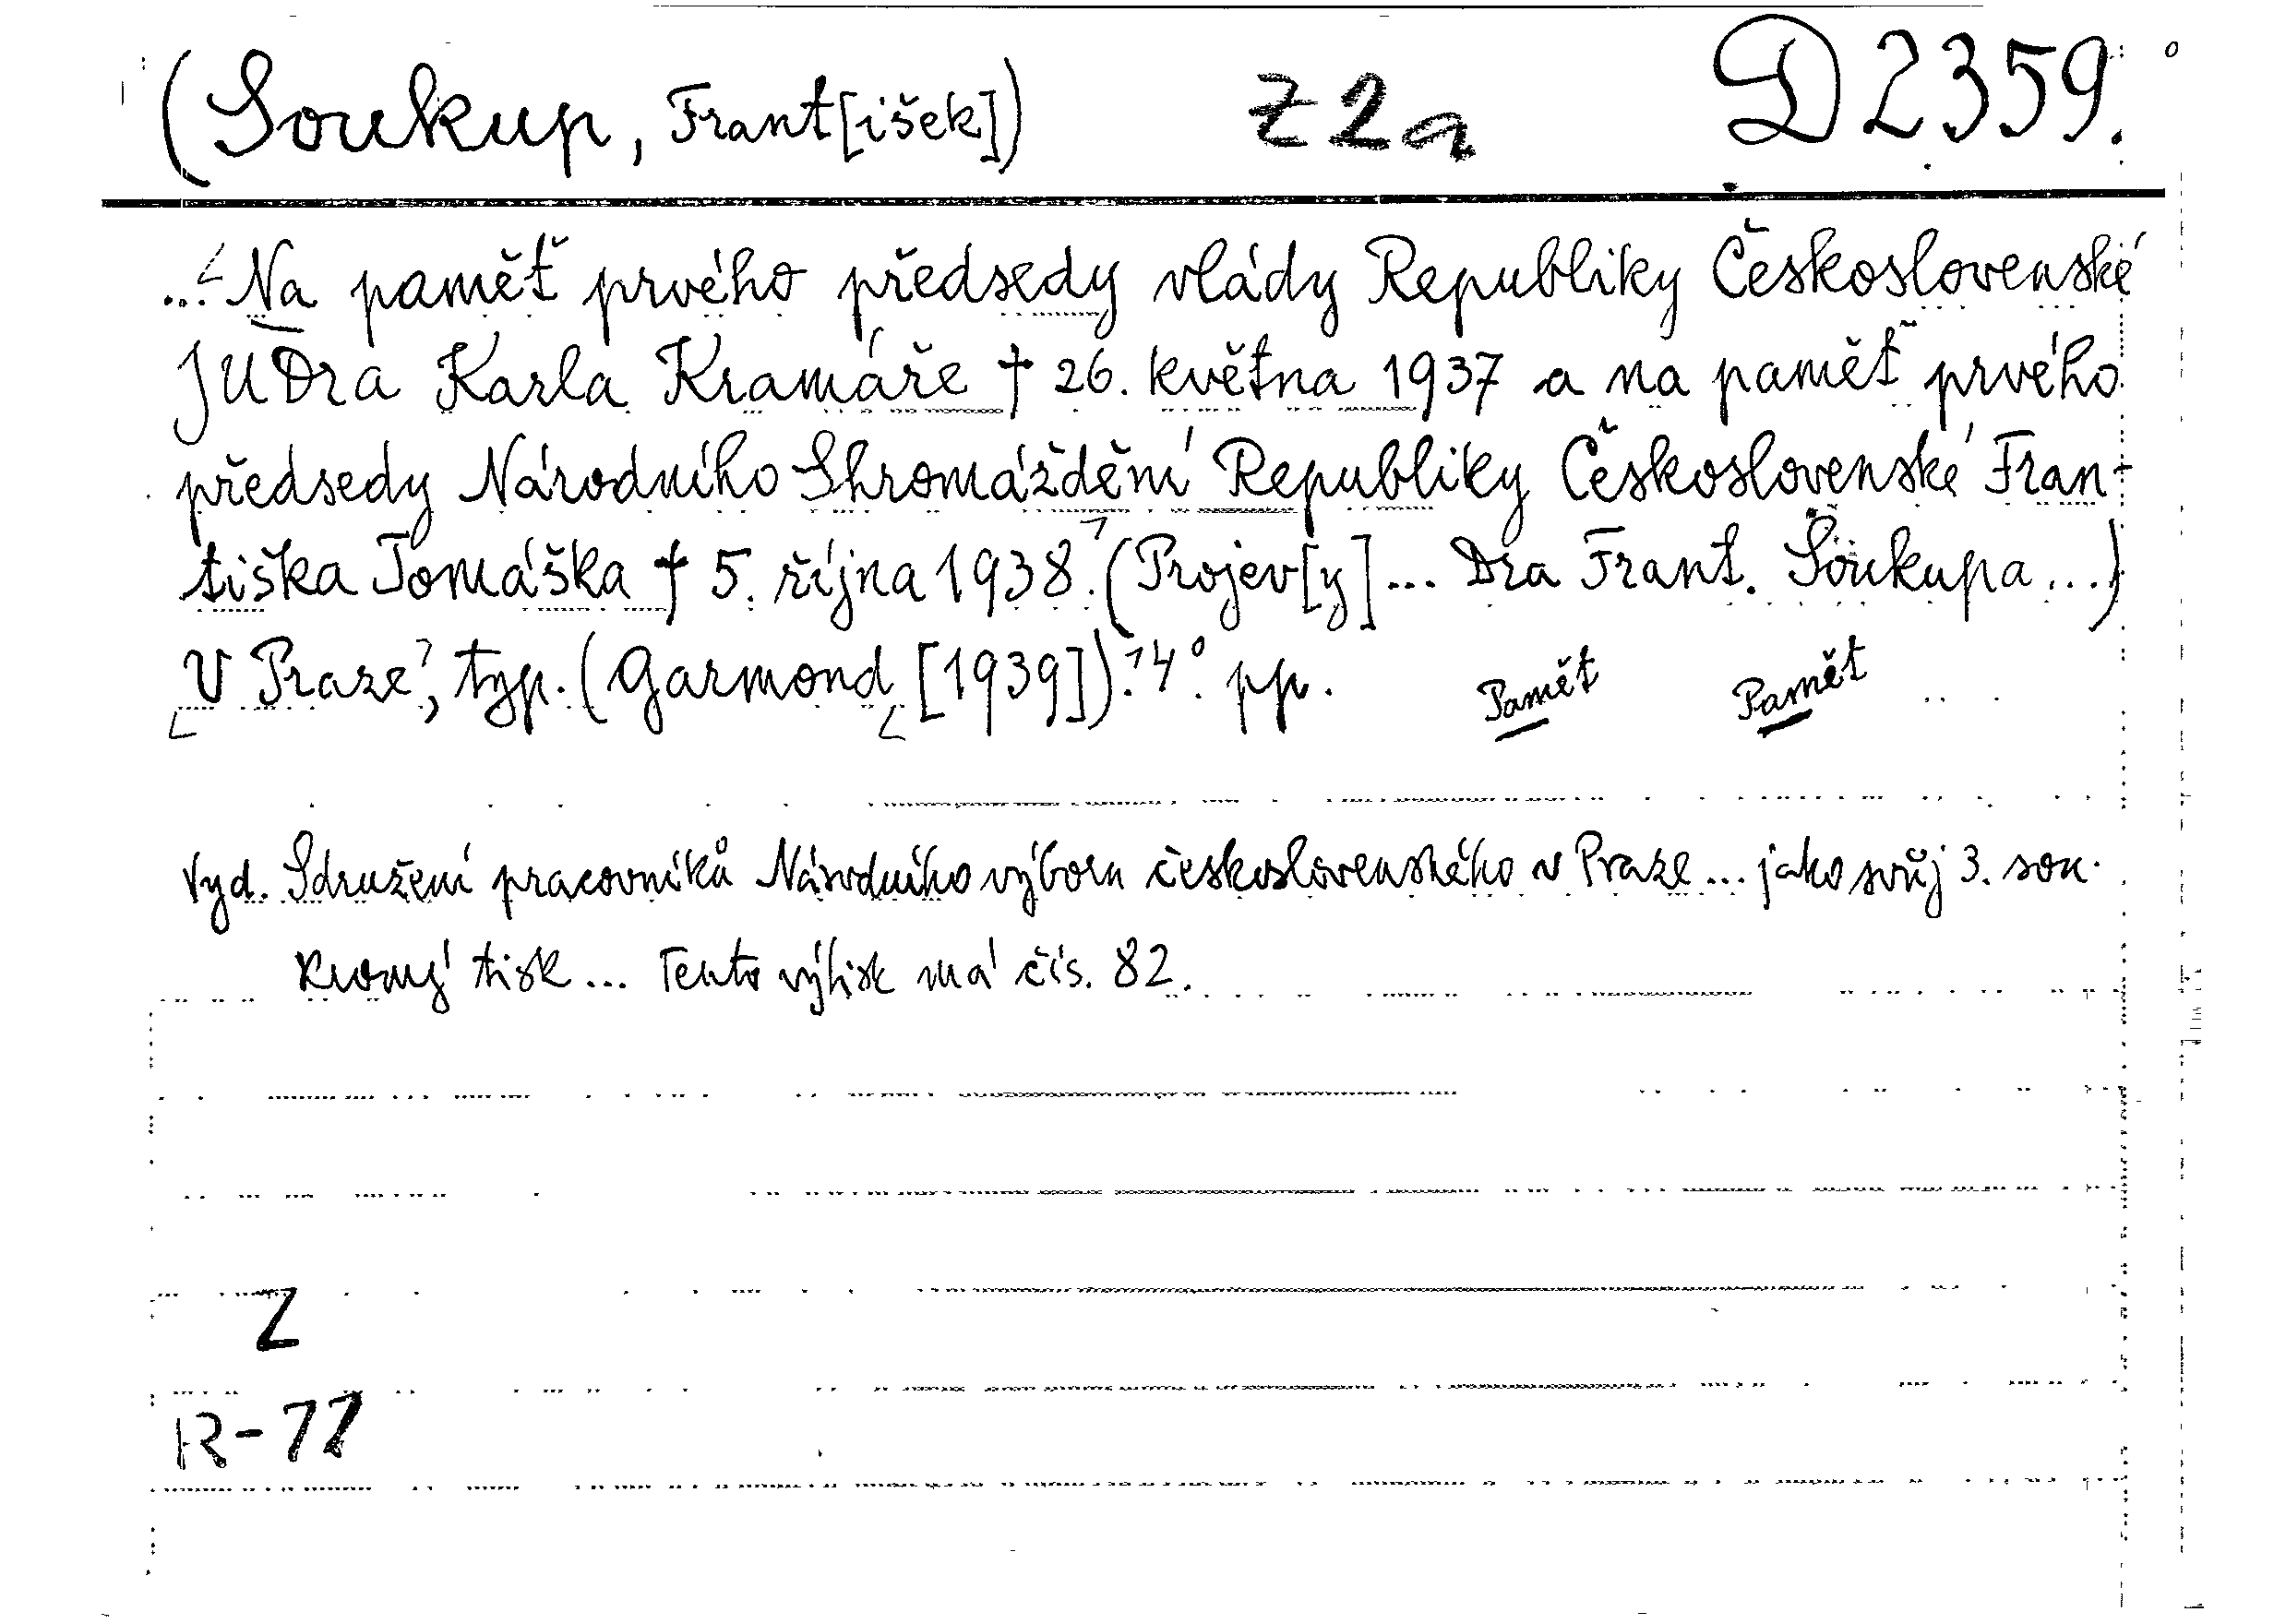 (Soukup, Frant[išek]) Z 2a D 2359.
... Na paměť prvého předsedy vlády Republiky Československé
JUDra Karla Kramáře † 26. května 1937 a na paměť prvého
předsedy Národního Shromáždění Republiky Československé Fran-
tiška Tomáška † 5. října 1938. (Projev[y] ... Dra Frant. Soukupa ...)
V Praze, typ. (Garmond [1939]). 4°. pp. Pamět Pamět
Vyd. Sdružení pracovníků Národního výboru československého v Praze ... jako svůj 3. sou-
kromý tisk ... Tento výtisk má čís. 82.
Z
R-77